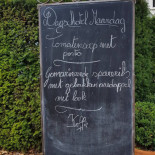 Dagschotel Maandag
Tomatensoep met
pesto
Gemarineerde spareribs
met gebakken aardappel
en look